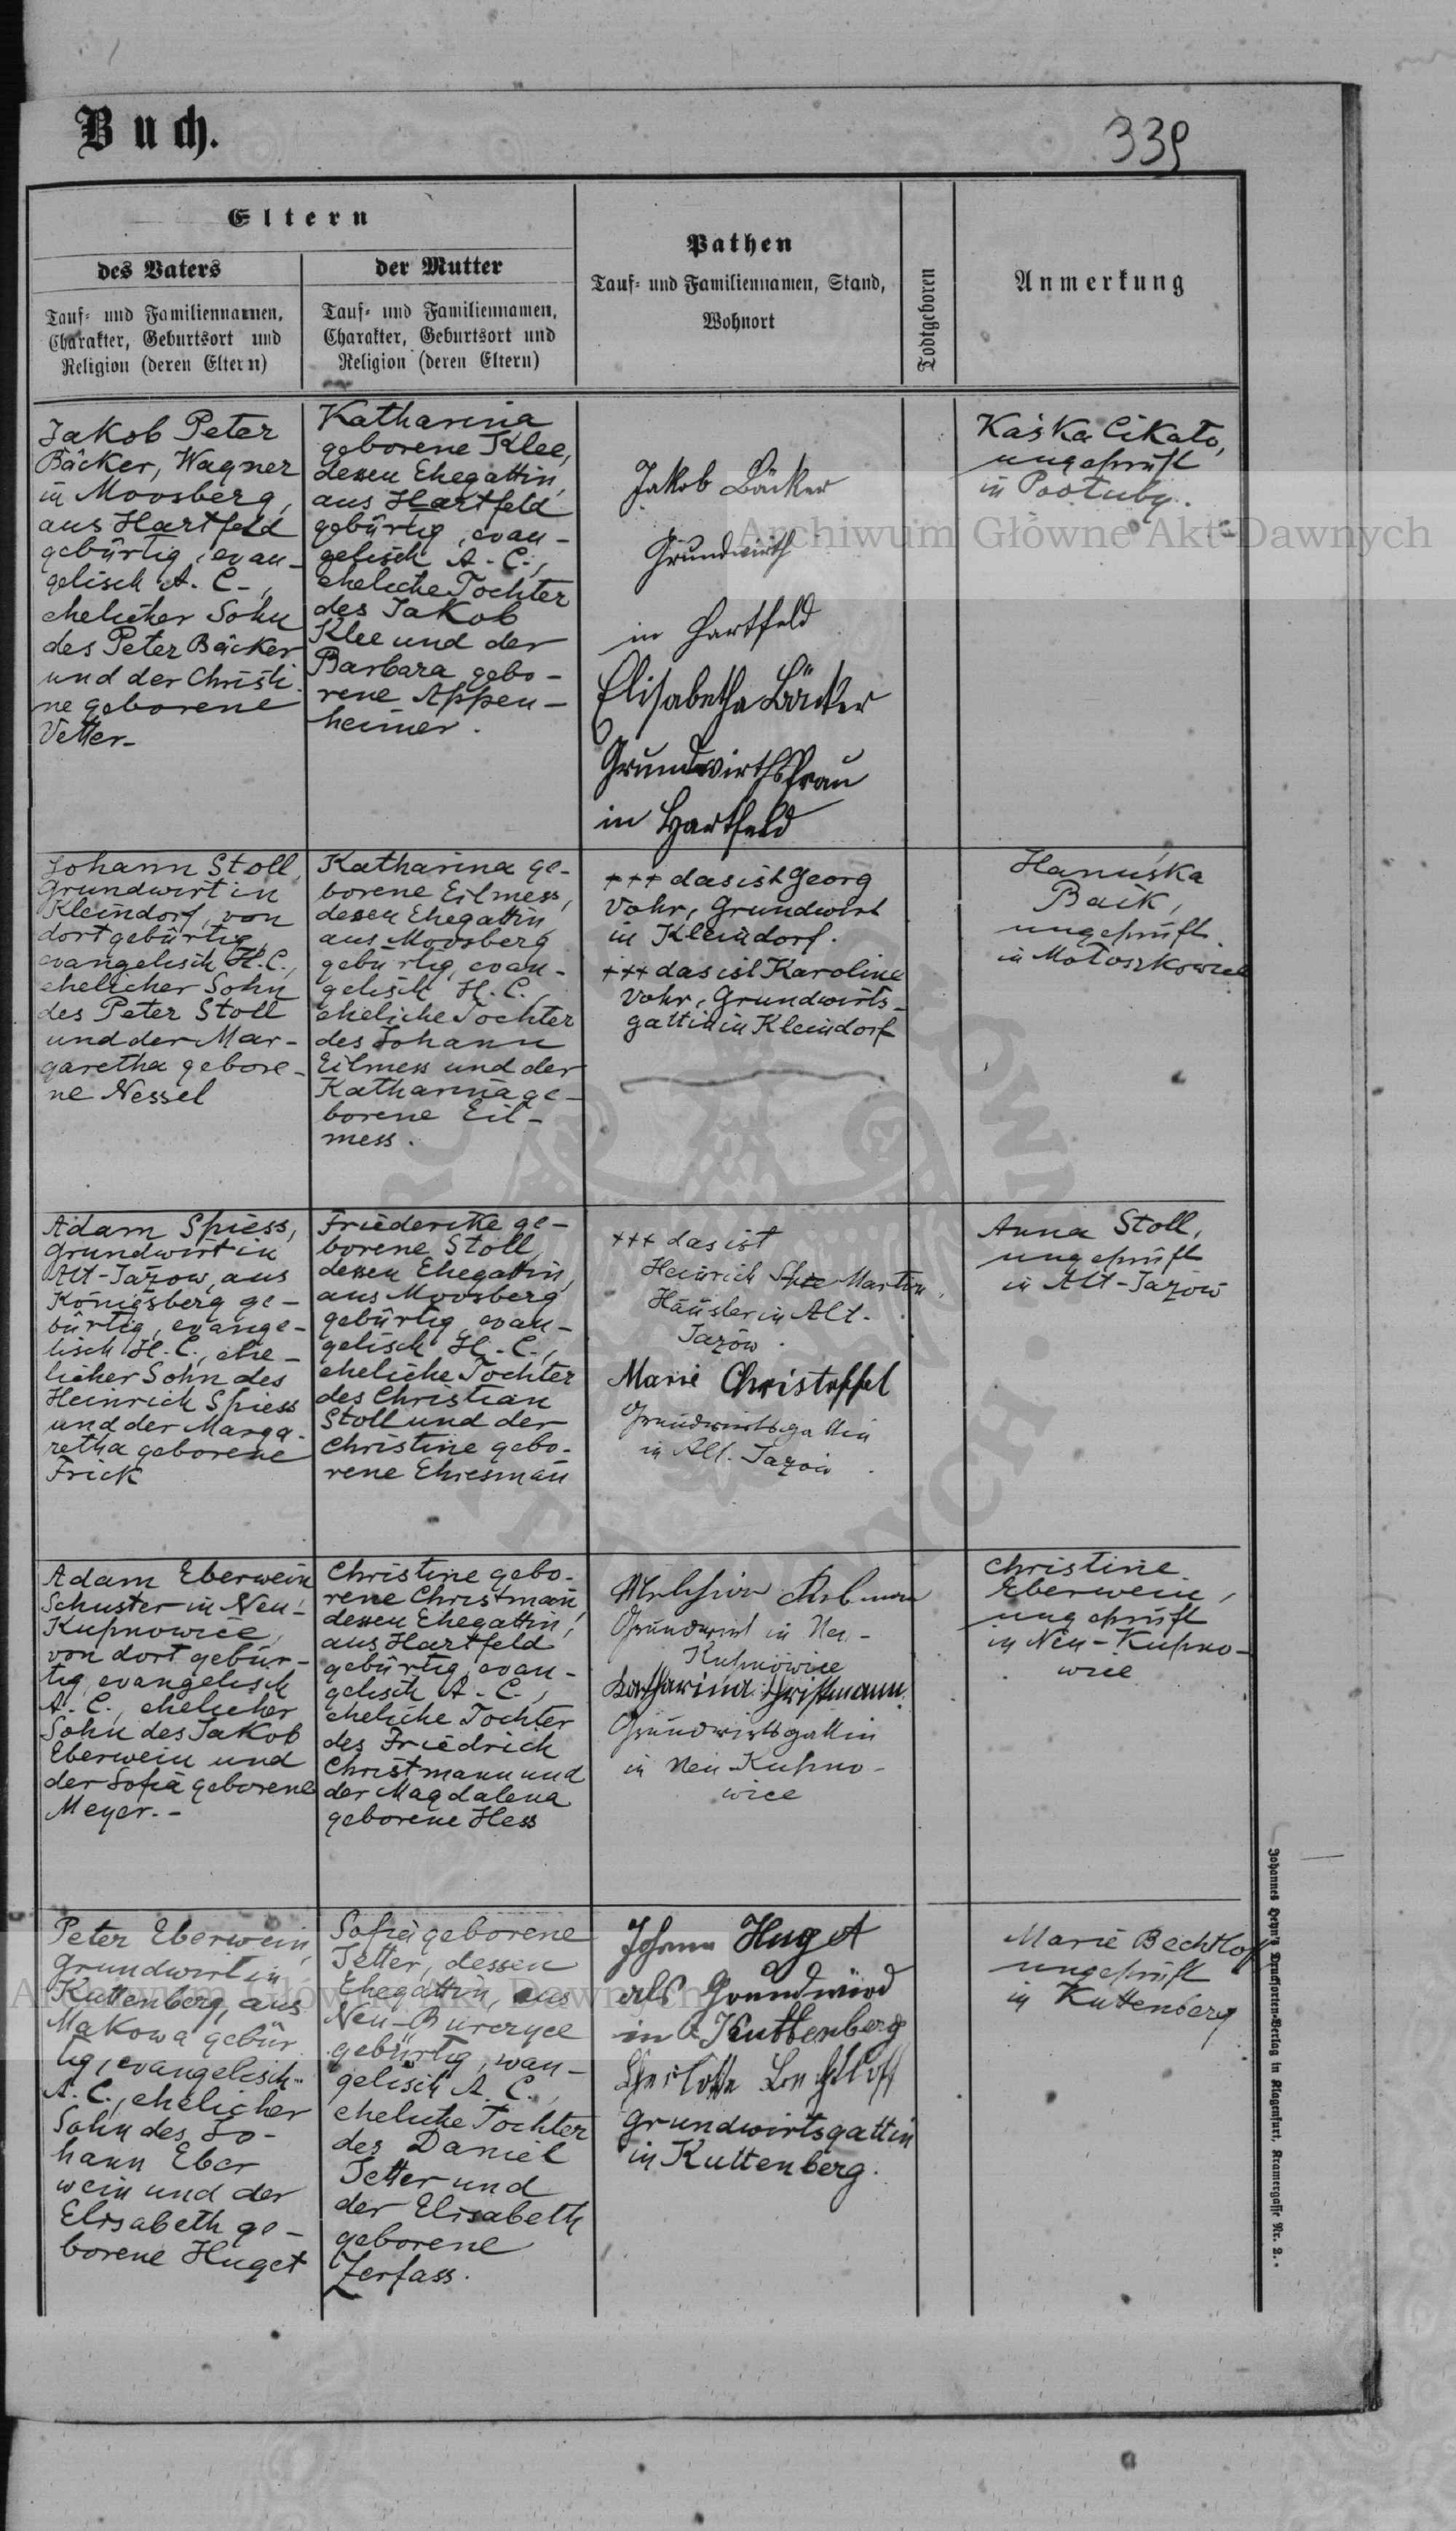 Buch.
339
Eltern
des Vaters
Tauf- und Familiennamen,
Charakter, Geburtsort und
Religion (deren Eltern)
der Mutter
Tauf- und Familiennamen,
Charakter, Geburtsort und
Religion (deren Eltern)
Pathen
Tauf- und Familiennamen, Stand,
Wohnort
Todtgeboren
Anmerkung
Jakob Peter
Bäcker, Wagner
in Moosberg,
aus Hartfeld
gebürtig, evan-
gelisch A. C.,
ehelicher Sohn
des Peter Bäcker
und der Christi-
ne geborene
Vetter-
Katharina
geborene Klee,
dessen Ehegattin,
aus Hartfeld
gebürtig, evan-
gelisch A. C.,
eheliche Tochter
des Jakob
Klee und der
Barbara gebo-
rene Appen-
heimer.
Jakob Bäcker
Grundwirth
in Hartfeld
Elisabetha Bäcker
Grundwirthsfrau
in Hartfeld
Kaśka Cikało,
ungeprüft
in Pootuby.
Johann Stoll,
Grundwirt in
Kleindorf, von
dort gebürtig,
evangelisch H. C.,
ehelicher Sohn
des Peter Stoll
und der Mar-
garetha gebore-
ne Nessel
Katharina ge-
borene Eilmess,
dessen Ehegattin,
aus Moosberg
gebürtig, evan-
gelisch H. C.,
eheliche Tochter
des Johann
Eilmess und der
Katharina ge-
borene Eil-
mess.
+++ das ist Georg
Vohr, Grundwirt
in Kleindorf.
+++ das ist Karoline
Vohr, Grundwirts-
gattin in Kleindorf
Hanuśka
Baik,
ungeprüft
in Małoszkowice
Adam Spiess,
Grundwirt in
Alt-Jazow, aus
Königsberg ge-
bürtig, evange-
lisch H. C., ehe-
licher Sohn des
Heinrich Spiess
und der Marga-
retha geborene
Frick
Friederike ge-
borene Stoll,
dessen Ehegattin,
aus Moosberg
gebürtig, evan-
gelisch H. C.,
eheliche Tochter
des Christian
Stoll und der
Christine gebo-
rene Ehresmañ
+++ das ist
Heinrich Martin,
Häusler in Alt-
Jazów.
Marie Christoffel
Grundwirtsgattin
in Alt-Jazów.
Anna Stoll,
ungeprüft
in Alt-Jazów
Adam Eberwein
Schuster in Neu-
Kupnowice,
von dort gebür-
tig, evangelisch
A. C., ehelicher
Sohn des Jakob
Eberwein und
der Sofia geborene
Meyer.-
Christine gebo-
rene Christmañ,
dessen Ehegattin,
aus Hartfeld
gebürtig, evan-
gelisch A. C.,
eheliche Tochter
des Friedrich
Christmann und
der Magdalena
geborene Hess
Grundwirt in Neu-
Kupnowice
Katharina Christmann.
Grundwirtsgattin
in Neu-Kupno-
wice
Christine
Eberwein,
ungeprüft
in Neu-Kupno-
wice
Peter Eberwein,
Grundwirt in
Kuttenberg, aus
Makowa gebür-
tig, evangelisch
A. C., ehelicher
Sohn des Jo-
hann Eber
wein und der
Elisabeth ge-
borene Huget
Sofia geborene
Jetter, dessen
Ehegattin, aus
Neu-Burczyce
gebürtig, evan-
gelisch A. C.,
eheliche Tochter
des Daniel
Jetter und
der Elisabeth
geborene
Zerfass.
Johann Huget
als Grundwird
in Kuttenberg
Charlotte Bechtloff
Grundwirtsgattin
in Kuttenberg.
Marie Bechtloff
ungeprüft
in Kuttenberg
Johannes Heyn's Drucksorten-Verlag in Klagenfurt, Kramergasse Nr. 2.
Archiwum Główne Akt Dawnych
Archiwum Główne Akt Dawnych